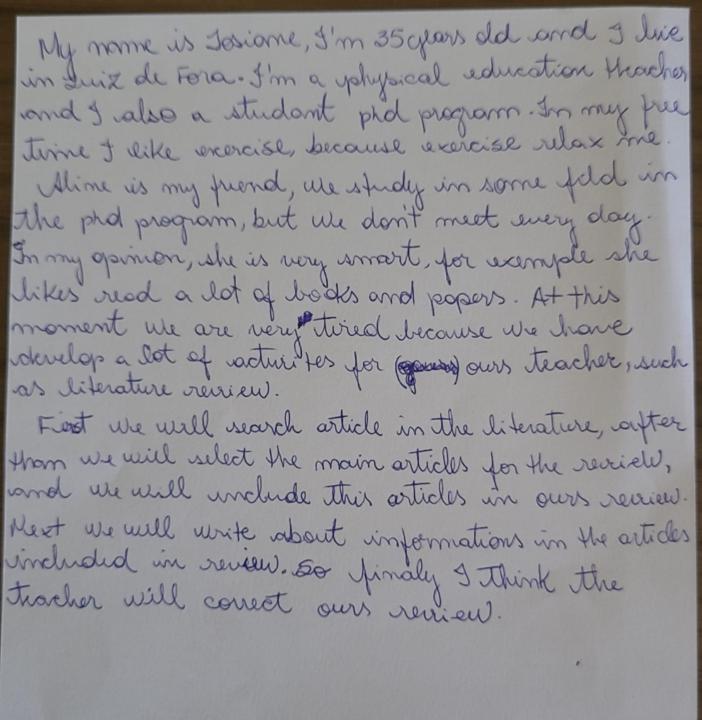 My name is Josiane, I'm 35 years old and I live
in Juiz de Fora. I'm a physical education theacher
and I also a student phd program. In my free
time I like exercise, because exercise relax me.
Aline is my friend, we study in some fild in
the phd program, but we don't meet every day.
In my opinion, she is very smart, for example she
likes read a lot of books and papers. At this
moment we are very tired because we have
develop a lot of activities for ours teacher, such
as literature review.
First we will search article in the literature, after
than we will select the main articles for the review,
and we will include this articles in ours review.
Next we will write about informations in the articles
included in review. So finaly I think the
teacher will correct ours review.